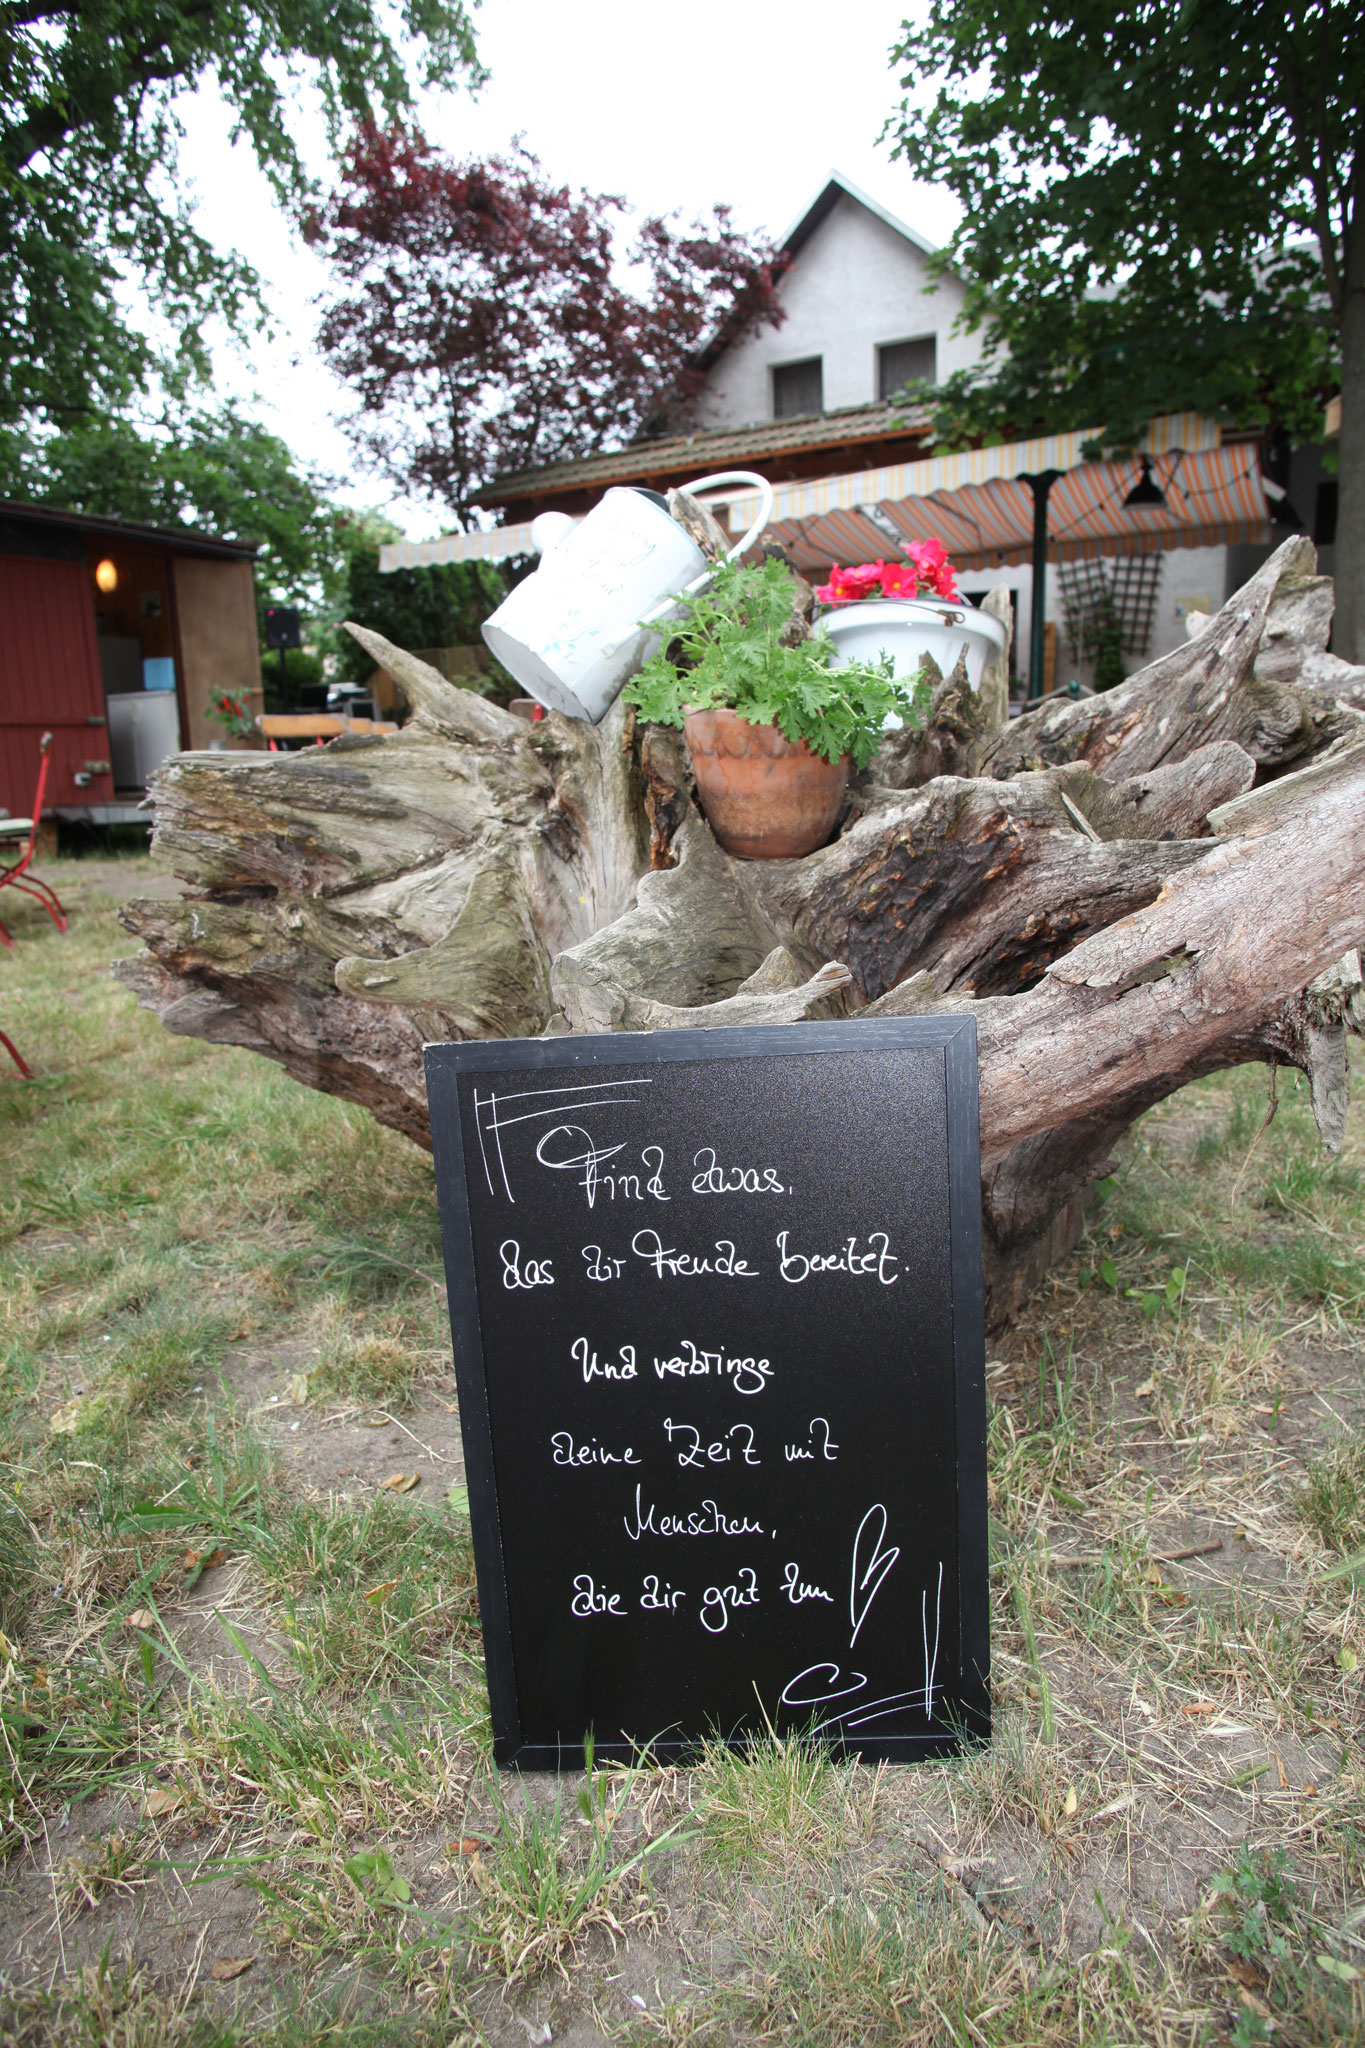 Find etwas,
das dir Freude bereitet.
Und verbringe
deine Zeit mit
Menschen,
die dir gut tun